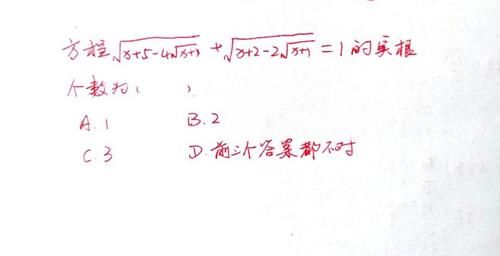 方程√(x+5-4√(x+1)) + √(x+2-2√(x+1)) = 1 的实根
个数为( ).
A. 1 B. 2
C. 3 D. 前三个答案都不对